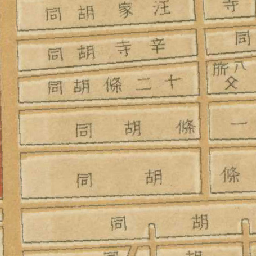 寺
汪家胡同
同
辛寺胡同
十二條胡同
一
條胡同
條
胡同
胡同
胡同